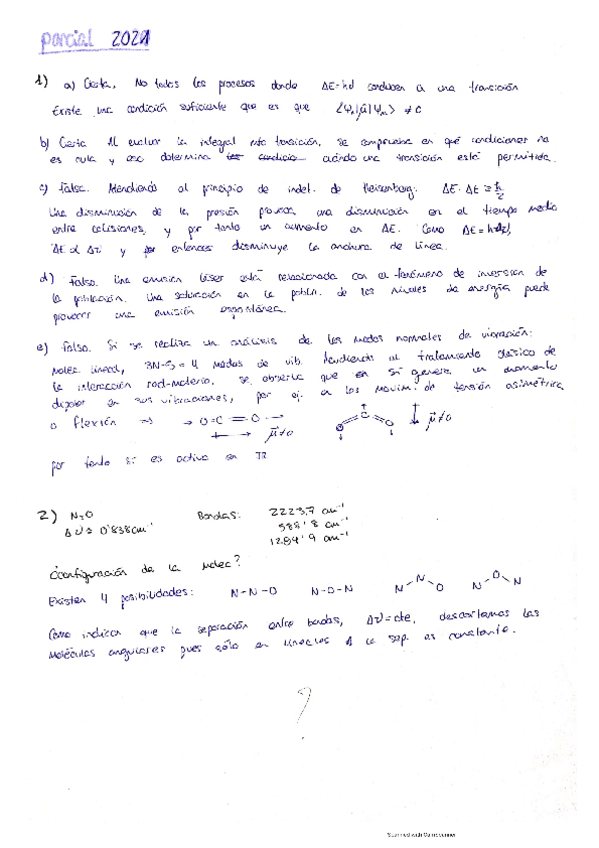 parcial 2021
1) a) Cierta. No todos los procesos donde ΔE=hν conducen a una transición
Existe una condición suficiente que es que ⟨Ψn|μ|Ψm⟩ ≠ 0
b) Cierta. Al evaluar la integral mto transición, se comprueba en qué condiciones no
es nula y eso determina cuándo una transición está permitida.
c) Falsa. Atendiendo al principio de indet. de Heisenberg: ΔE·Δt ≥ ħ/2
Una disminución de la presión provoca una disminución en el tiempo medio
entre colisiones, y por tanto un aumento en ΔE. Como
ΔE ∝ Δν y por entonces disminuye la anchura de línea.
d) Falso. Una emisión láser está relacionada con el fenómeno de inversión de
la población. Una saturación en la pobla. de los niveles de energía puede
provocar una emisión espontánea.
e) Falso. Si se realiza un análisis de los modos normales de vibración:
molec lineal, 3N-5 = 4 modos de vib. Atendiendo al tratamiento clásico de
la interacción rad-materia, se observa que en sí genera un momento
dipolar en sus vibraciones, por ej. en los movim. de tensión asimétrica
o flexión ⇒ →O=C=O→ O C O μ≠0
μ≠0
por tanto sí es activa en IR
2) N₂O Bandas: 2223,7 cm⁻¹
Δν = 0'838 cm⁻¹ 588'8 cm⁻¹
1284'9 cm⁻¹
¿configuración de la molec?
Existen 4 posibilidades: N-N-O N-O-N N N O N O N
Como indican que la separación entre bandas, Δν=cte, descartamos las
moléculas angulares pues sólo en lineales la sep. es constante.
?
Scanned with CamScanner